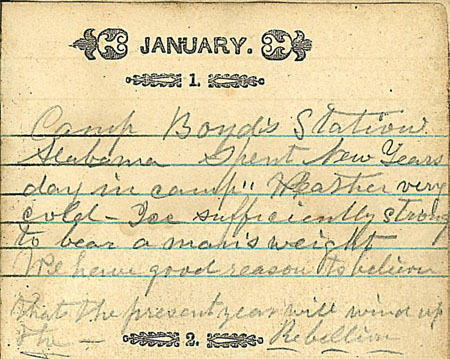 JANUARY.
1.
Camp Boyd's Station
Alabama Spent New Years
day in camp" Weather very
cold - Ice sufficiently strong
to bear a man's weight
We have good reason to believe
that the present year will wind up
the - 2. Rebellion